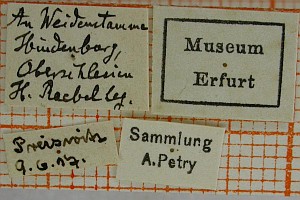 An Weidenstamme
Hindenburg,
Oberschlesien
H. Raebel leg.
Museum
Erfurt
9.6.17.
Sammlung
A. Petry